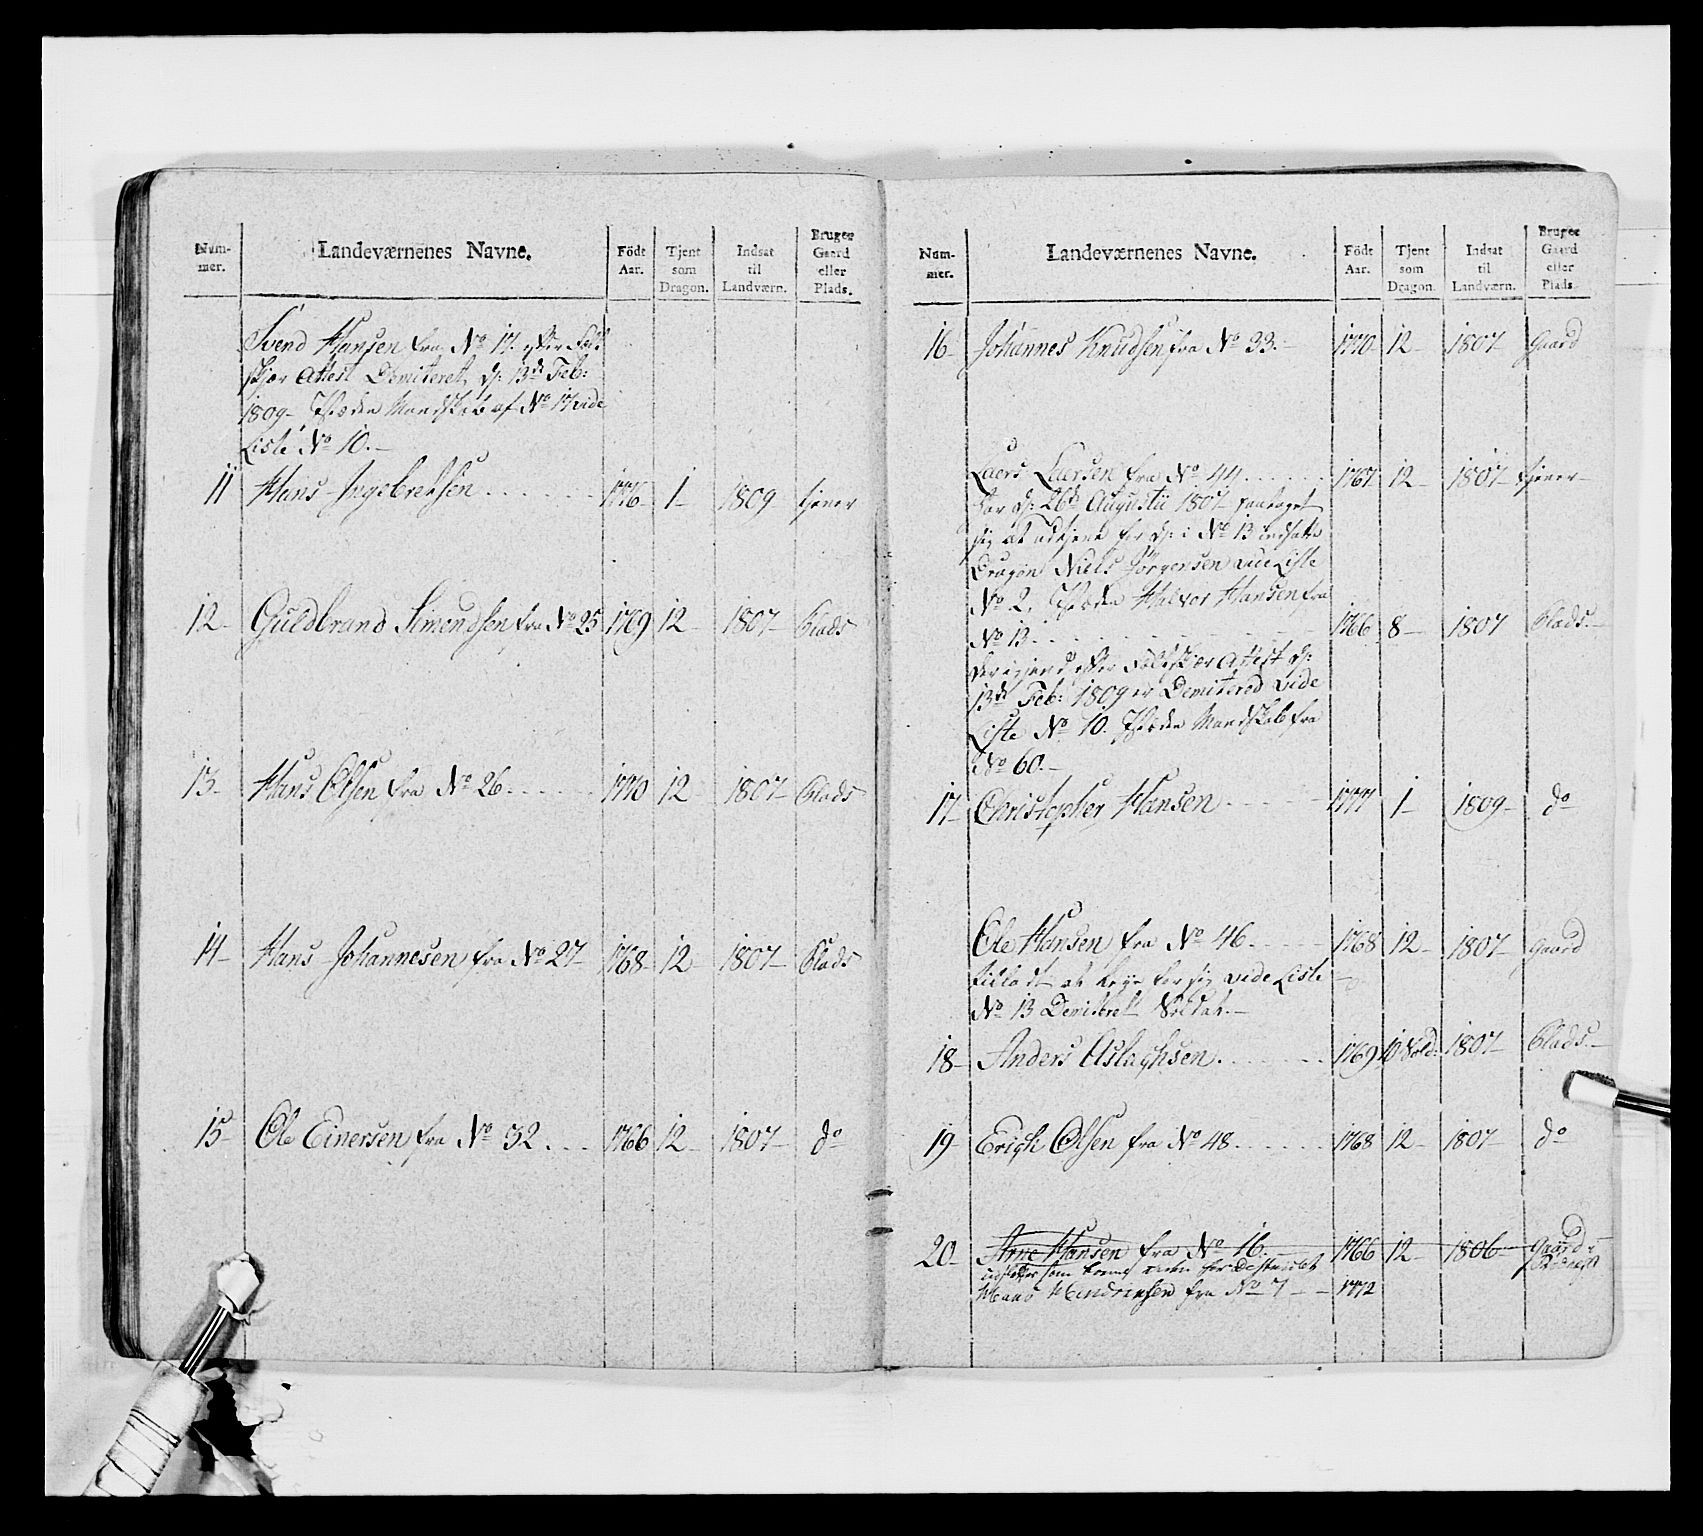 Num-
mer.
Landeværnenes Navne.
Födt
Aar.
Tjent
som
Dragon.
Indsat
til
Landværn.
Bruger
Gaard
eller
Plads.
Svend Hansen fra No 17. efter Felt
skjær Attest Demiteret, d: 13de Feb:
1809- Isteden Mandskab af No 17 vide
Liste No 10.-
11 Hans Ingebretsen ...... 1776- 1- 1809 tjener
12- Guldbrand Simondsen fra No 25 1769 12 1807- Plads
13- Hans Olsen fra No 26 ...... 1770 12 1807- Plads
14- Hans Johannesen fra No 27- 1768- 12 1807- Plads
15- Ole Einersen fra No 32 .... 1766 12- 1807- do
Num-
mer.
Landeværnenes Navne.
Födt
Aar.
Tjent
som
Dragon.
Indsat
til
Landværn.
Bruger
Gaard
eller
Plads.
16- Johannes Knudsen fra No 33.- 1770- 12- 1807- Gaard
Laers Laersen fra No 44 ...... 1767 12- 1807- tjener-
har d: 26de Augustii 1807 paataget
sig at udtjene for d: i No 13 indsatte
Dragon Niels Jörgensen vide Liste
No 2. Isteden Halvor Hansen fra
No 13 ...... 1766 8- 1807 Plads.-
der igjen efter Feltskjær Attest d:
13de Feb: 1809 er Demitered vide
Liste No 10. Isteden Mandskab fra
No 60.-
17- Christopher Hansen ...... 1777 1- 1809- do
Ole Hansen fra No 46. .... 1768 12- 1807- Gaard
tilladt at leye for sig vide Liste
No 13 Demiteret Soldat.-
18- Anders Aslachsen ...... 1769 10 Sold: 1807- Plads.-
19- Erich Olsen fra No 48 ...... 1768 12- 1807- do
20- Arne Hansen fra No 16. 1766 12- 1806- Gaard
som
Hans Hendrichsen fra No 7 - - 1772